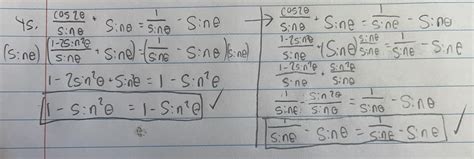 45. cos2θ/sinθ + sinθ = 1/sinθ - sinθ
(sinθ) (1-2sin²θ/sinθ + sinθ) = (1/sinθ - sinθ)(sinθ)
1-2sin²θ + sin²θ = 1 - sin²θ
1 - sin²θ = 1 - sin²θ ✓
→ cos2θ/sinθ + sinθ = 1/sinθ - sinθ
1-2sin²θ/sinθ + (sinθ) sinθ/sinθ = 1/sinθ - sinθ
1-2sin²θ/sinθ + sin²θ/sinθ
1/sinθ - sin²θ/sinθ = 1/sinθ - sinθ
1/sinθ - sinθ = 1/sinθ - sinθ ✓